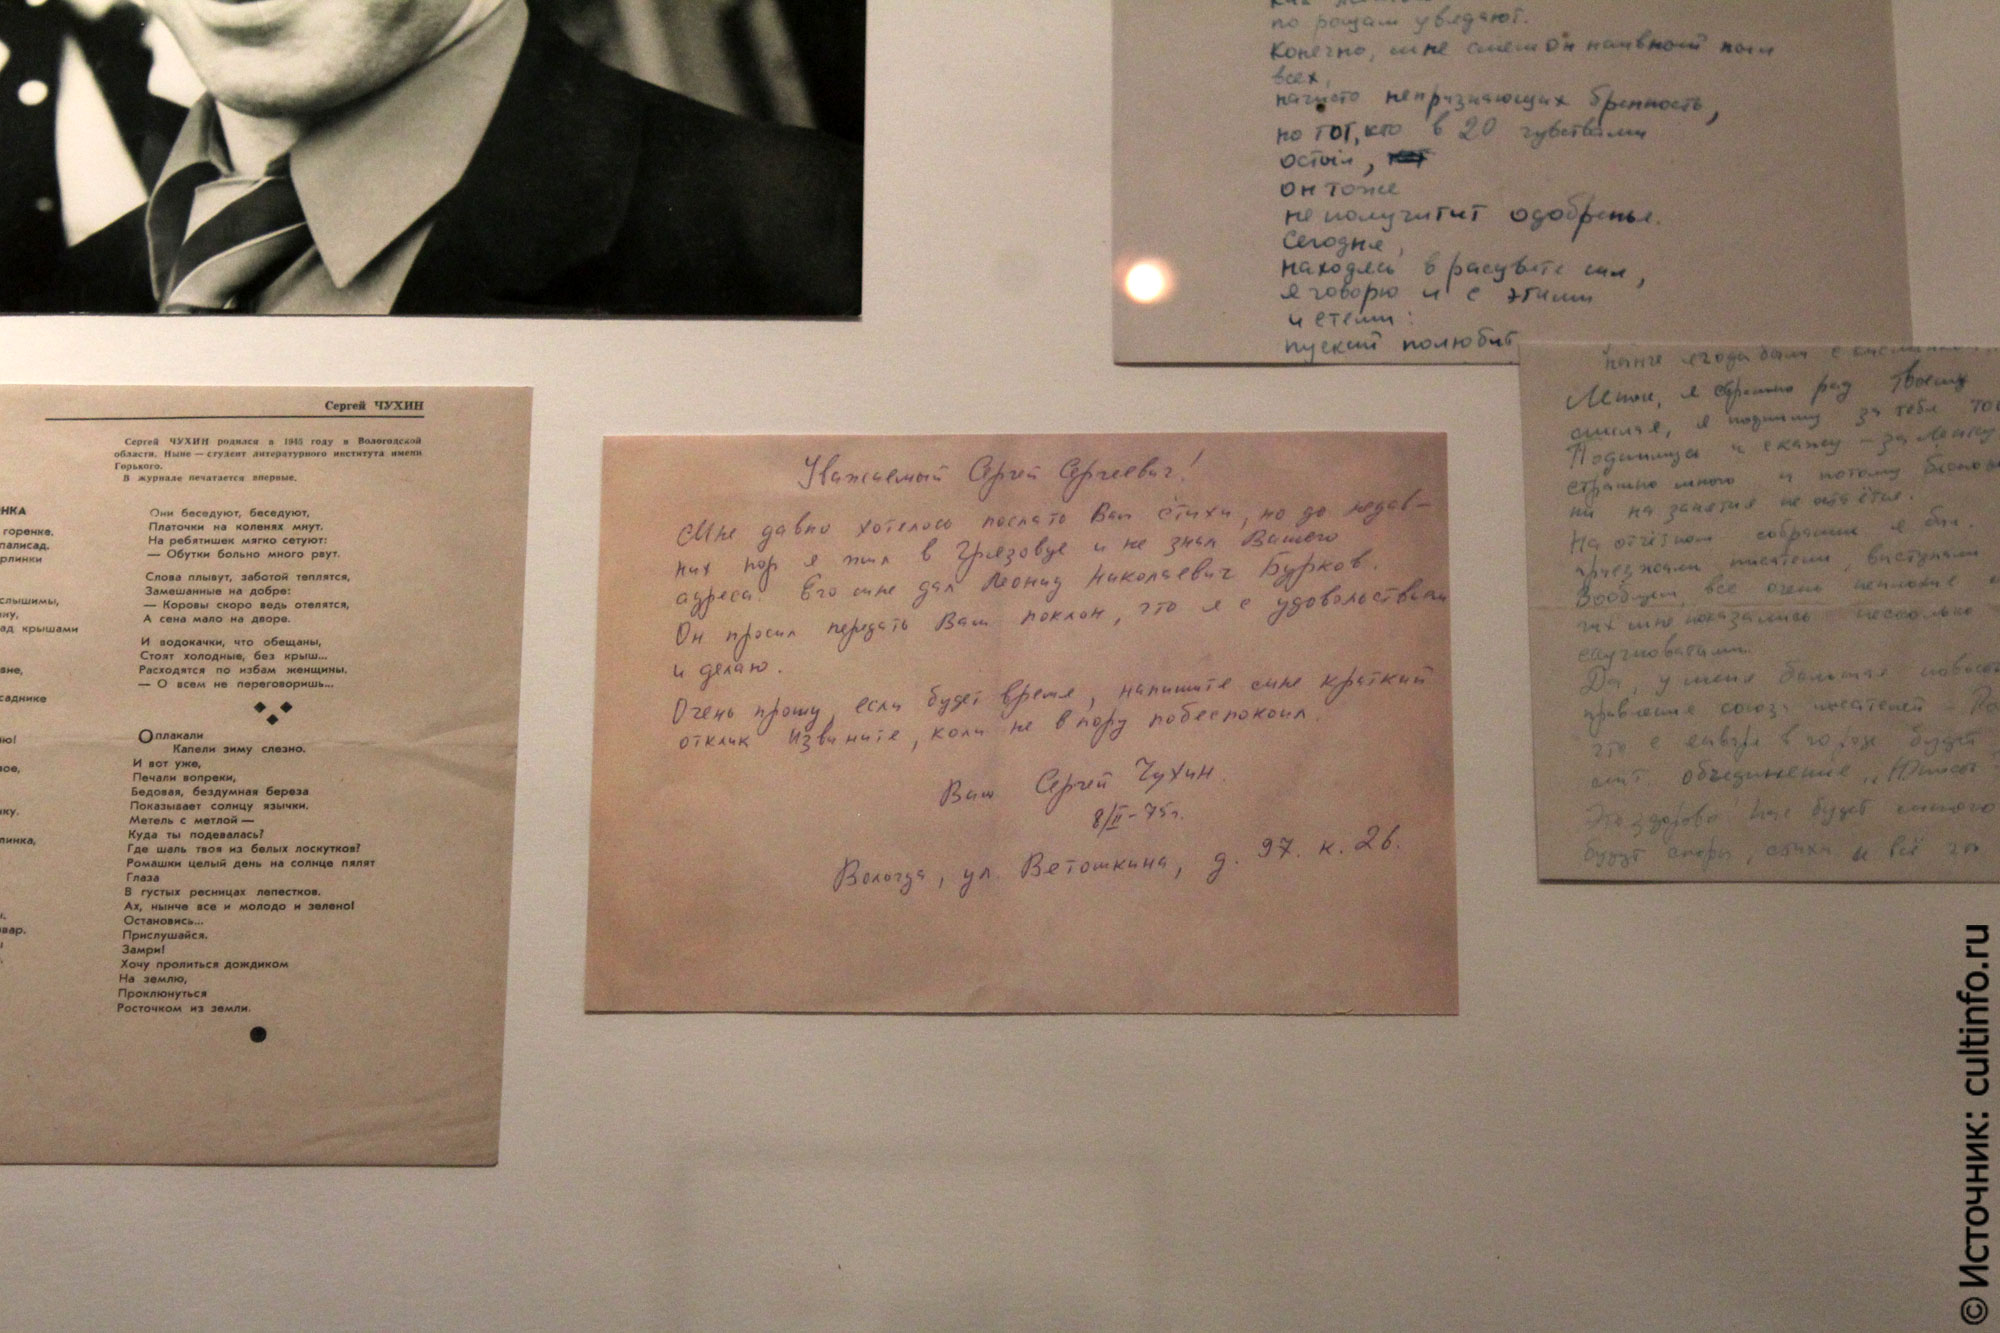 Сергей ЧУХИН
Сергей ЧУХИН родился в 1945 году в Вологодской
области. Ныне — студент литературного института имени
Горького.
В журнале печатается впервые.
НКА
горенке,
палисад,
слышимы,
ад крышами
саднике
Они беседуют, беседуют,
Платочки на коленях мнут.
На ребятишек мягко сетуют:
— Обутки больно много рвут.
Слова плывут, заботой теплятся,
Замешанные на добре:
— Коровы скоро ведь отелятся,
А сена мало на дворе.
И водокачки, что обещаны,
Стоят холодные, без крыш...
Расходятся по избам женщины.
— О всем не переговоришь...
Оплакали
Капели зиму слезно.
И вот уже,
Печали вопреки,
Бедовая, бездумная береза
Показывает солнцу язычки.
Метель с метлой —
Куда ты подевалась?
Где шаль твоя из белых лоскутков?
Ромашки целый день на солнце пялят
Глаза
В густых ресницах лепестков.
Ах, нынче все и молодо и зелено!
Остановись...
Прислушайся.
Замри!
Хочу пролиться дождиком
На землю,
Проклюнуться
Росточком из земли.
Уважаемый Сергей Сергеевич!
Мне давно хотелось послать Вам стихи, но до недав-
них пор я жил в Грязовце и не знал Вашего
адреса. Его мне дал Леонид Николаевич Бурков.
Он просил передать Вам поклон, что я с удовольствием
и делаю.
Очень прошу, если будет время, напишите мне краткий
отклик. Извините, коли не в пору побеспокоил.
Ваш Сергей Чухин.
8/II-75г.
Вологда, ул. Ветошкина, д. 97. к. 26.
по рощам увядают.
Конечно, мне смешон наивный пыл
всех,
начисто непризнающих бренность,
но тот, кто в 20 чувствами
остыл,
он тоже
не получитит одобренье.
Сегодня,
находясь в расцвете сил,
я говорю и с этими
и стеми:
пускай полюбит
я страшно рад Твоему
я подниму за тебя
Поднимусь и скажу — за Леньку
страшно много и потому
ни на занятия не остаётся.
На отчётном собрании я был.
приезжали писатели, выступали
Вообщем, все очень неплохие
мне показались несколько
скучноватыми.
Да, у меня большая новость
правление союза писателей
что с января в городе будет
объединение „Юность
Это здорово! Там будет много
будут споры, стихи и всё
© Источник: cultinfo.ru